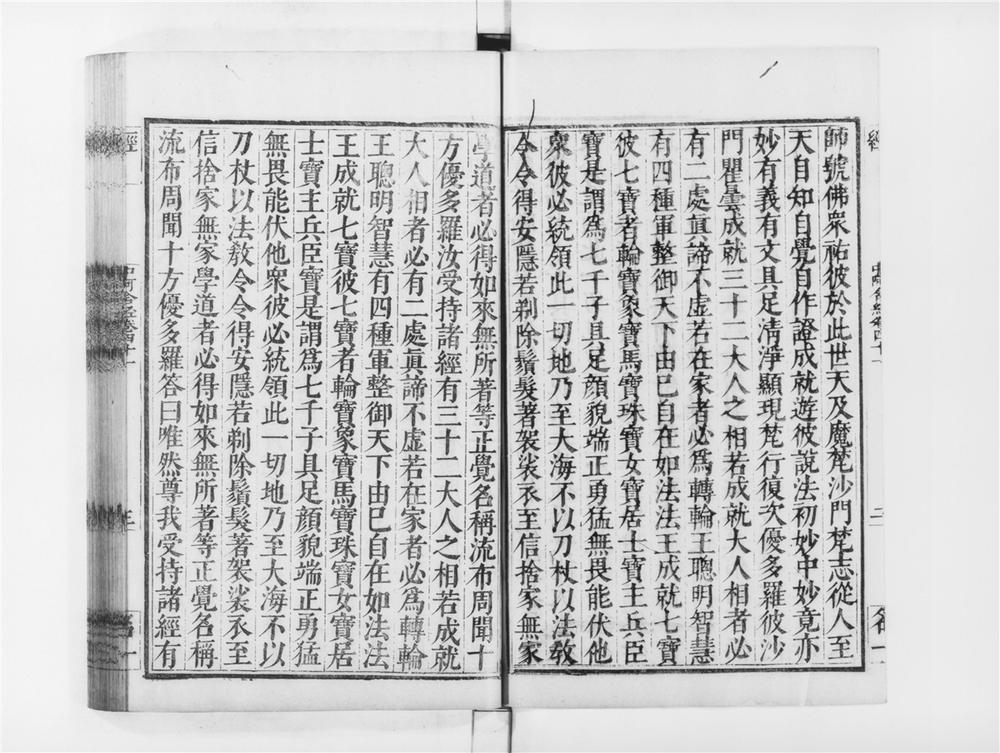 師號佛衆祐彼於此世天及魔梵沙門梵志從人至
天自知自覺自作證成就遊彼說法初妙中妙竟亦
妙有義有文具足清淨顯現梵行復次優多羅彼沙
門瞿曇成就三十二大人之相若成就大人相者必
有二處眞諦不虛若在家者必爲轉輪王聰明智慧
有四種軍整御天下由已自在如法法王成就七寶
彼七寶者輪寶象寶馬寶珠寶女寶居士寶主兵臣
寶是謂爲七千子具足顏貌端正勇猛無畏能伏他
衆彼必統領此一切地乃至大海不以刀杖以法敎
令令得安隱若剃除鬚髮著袈裟衣至信捨家無家
學道者必得如來無所著等正覺名稱流布周聞十
方優多羅汝受持諸經有三十二大人之相若成就
大人相者必有二處眞諦不虛若在家者必爲轉輪
王聰明智慧有四種軍整御天下由已自在如法法
王成就七寶彼七寶者輪寶象寶馬寶珠寶女寶居
士寶主兵臣寶是謂爲七千子具足顏貌端正勇猛
無畏能伏他衆彼必統領此一切地乃至大海不以
刀杖以法敎令令得安隱若剃除鬚髮著袈裟衣至
信捨家無家學道者必得如來無所著等正覺名稱
流布周聞十方優多羅答曰唯然尊我受持諸經有